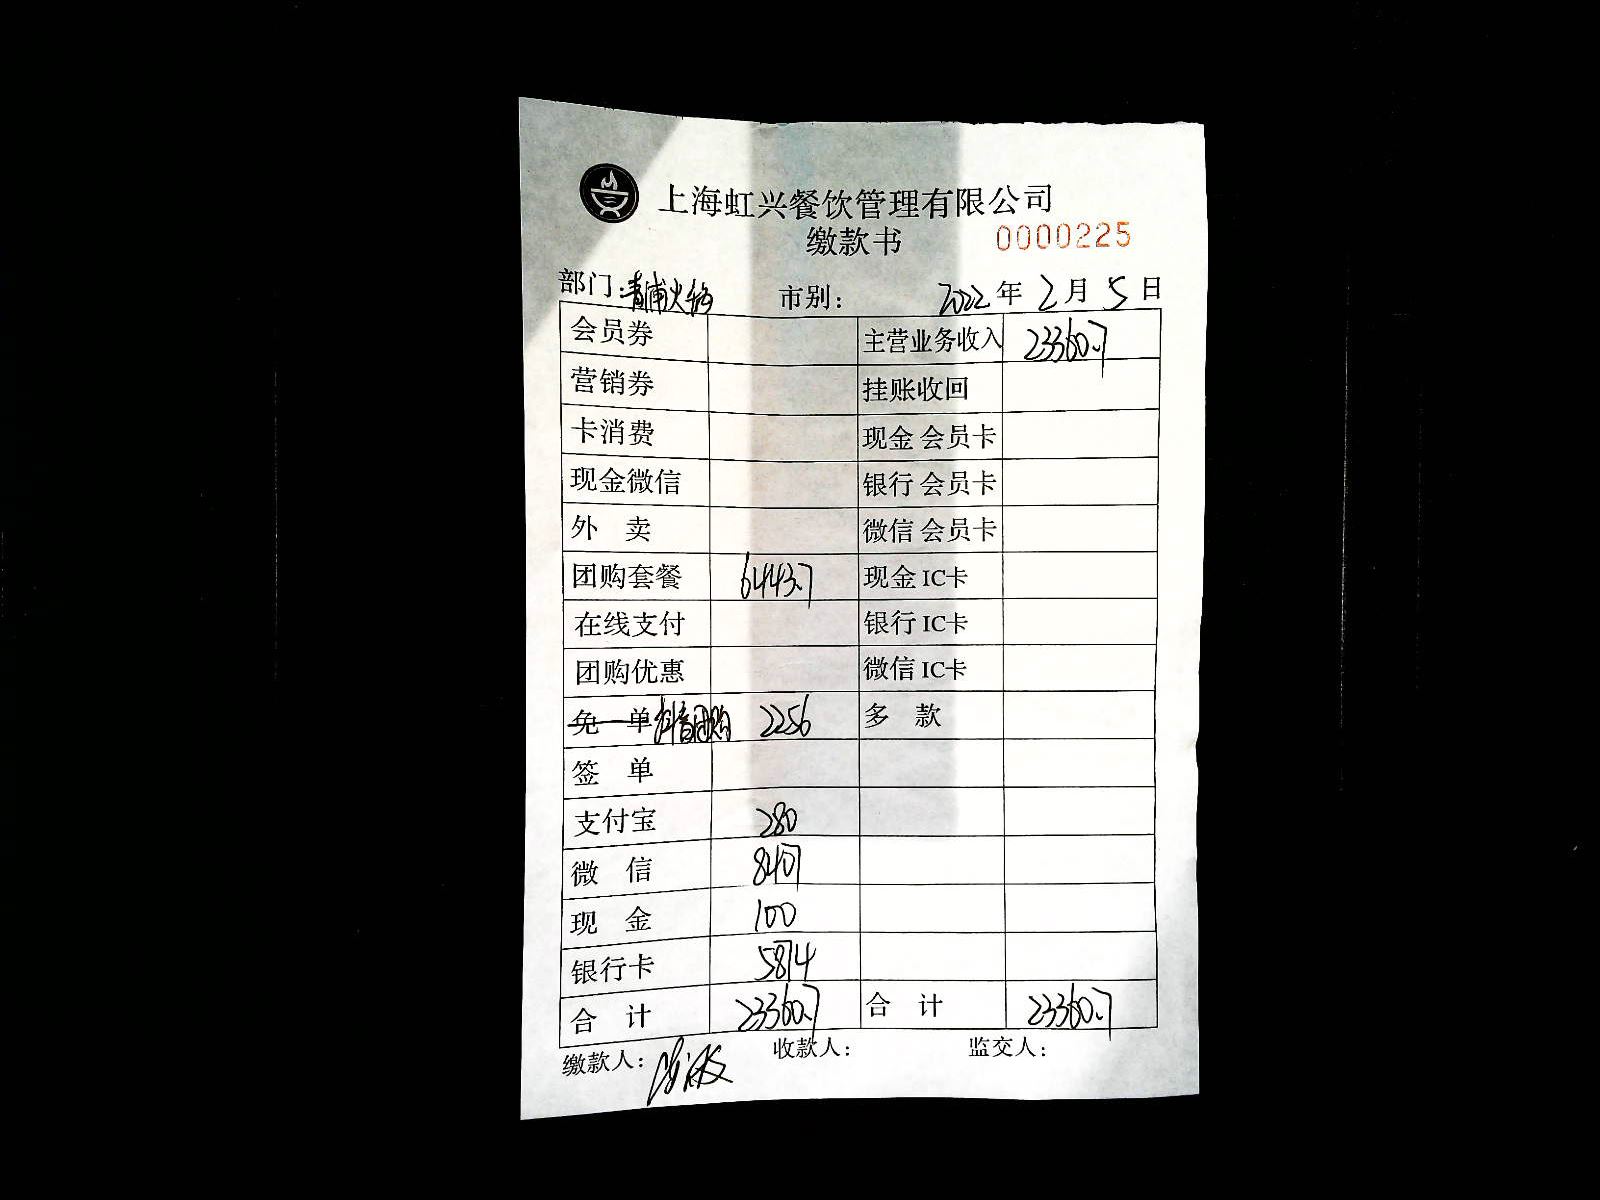 上海虹兴餐饮管理有限公司
缴款书 0000225
部门:青浦火锅 市别: 2022年2月5日
会员券 主营业务收入 23360.7
营销券 挂账收回
卡消费 现金会员卡
现金微信 银行会员卡
外卖 微信会员卡
团购套餐 6443.7 现金IC卡
在线支付 银行IC卡
团购优惠 微信IC卡
免单 抖音团购 2256 多款
签单
支付宝 280
微信 8407
现金 100
银行卡 5874
合计 23360.7 合计 23360.7
缴款人: 收款人: 监交人: